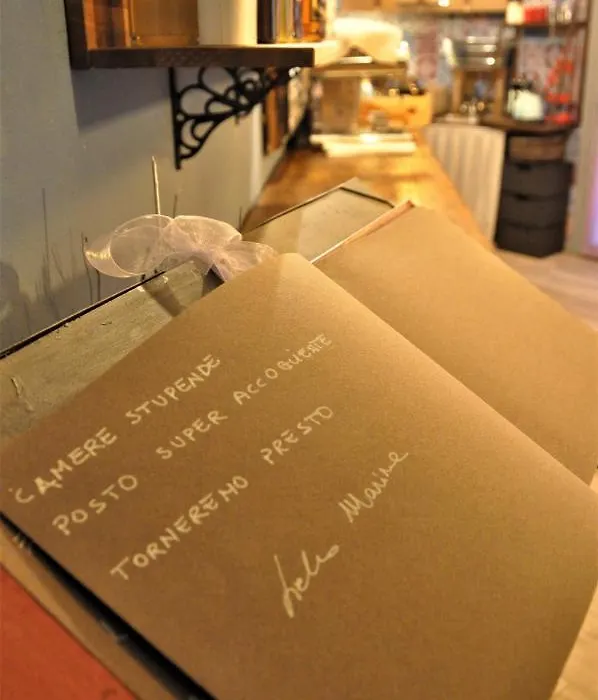 CAMERE STUPENDE
POSTO SUPER ACCOGLIENTE
TORNEREMO PRESTO